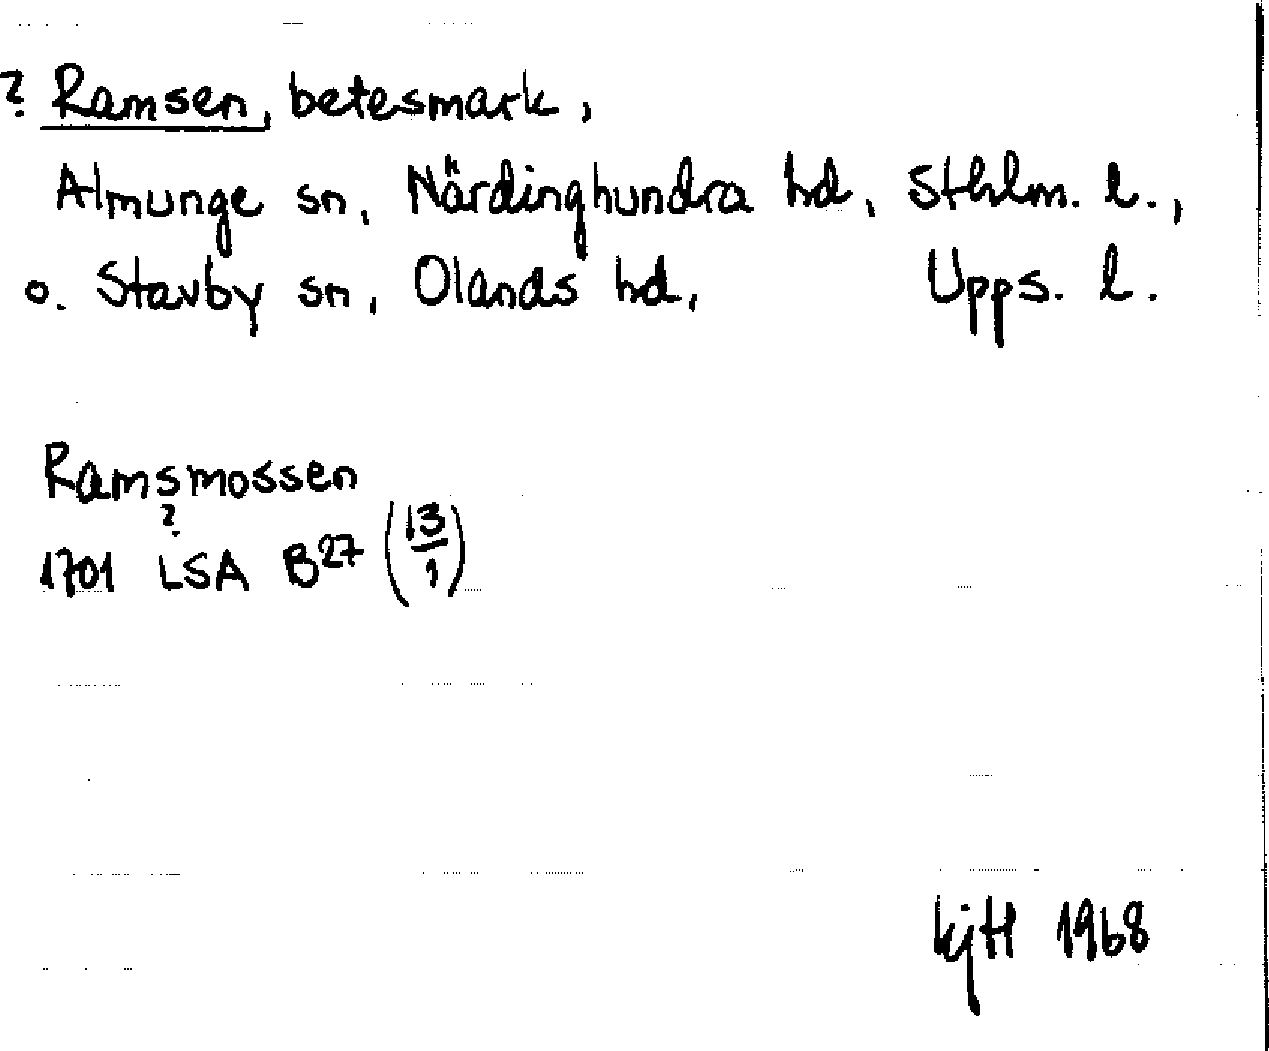 ? Ramsen, betesmark,
Almunge sn, Närdinghundra hd, Sthlm. l.,
o. Stavby sn, Olands hd, Upps. l.
Ramsmossen
?
1701 LSA B27 (13/1)
KjH 1968